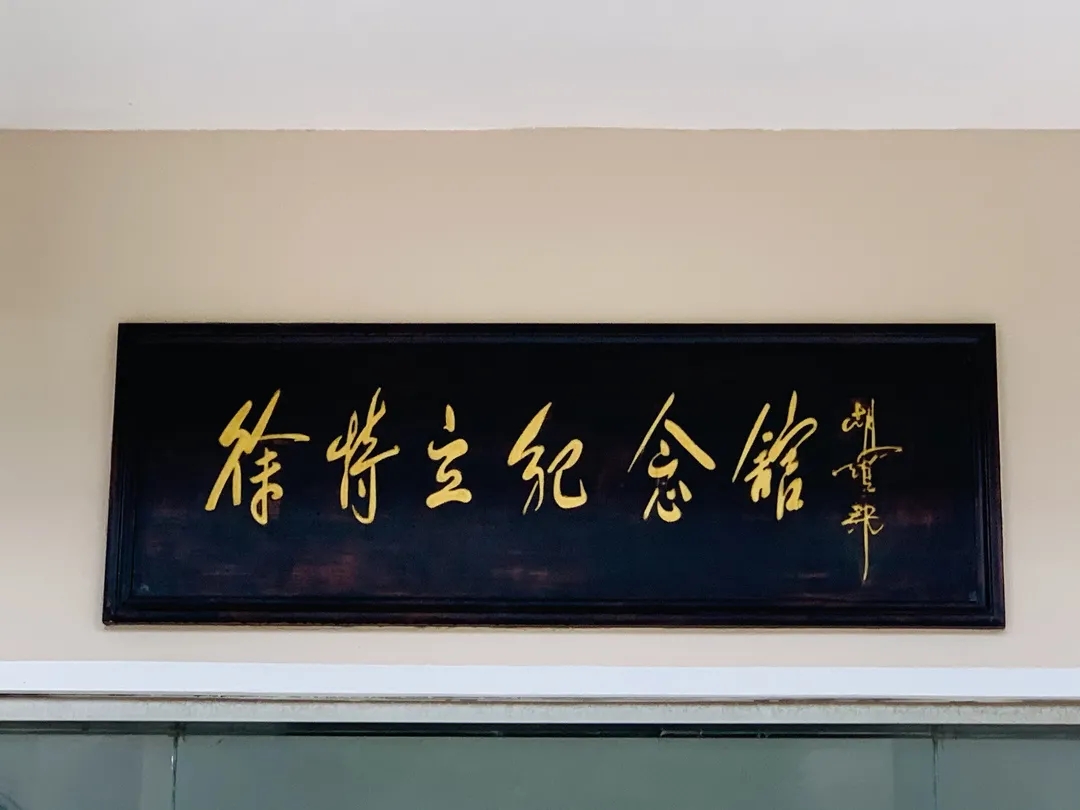 徐特立纪念舘
胡耀邦